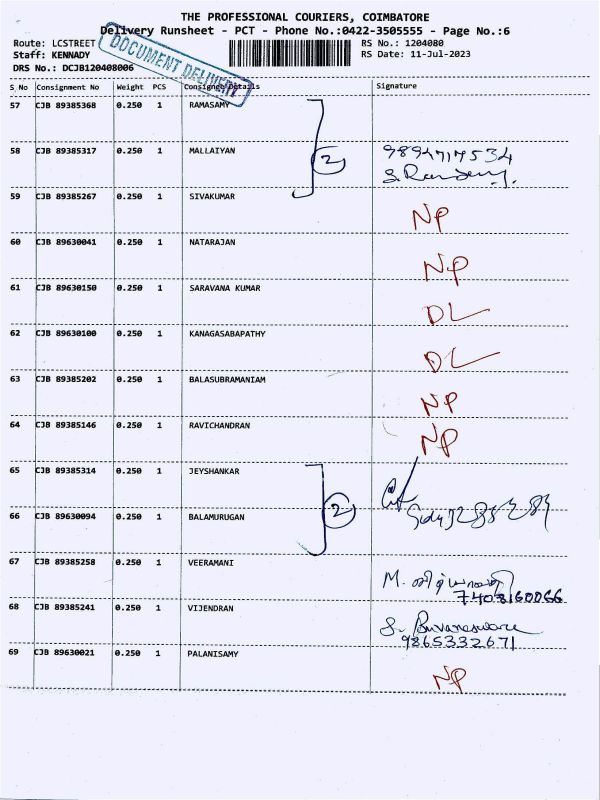 THE PROFESSIONAL COURIERS, COIMBATORE
Delivery Runsheet - PCT - Phone No.:0422-3505555 - Page No.:6
Route: LCSTREET
RS No.: 1204080
Staff: KENNADY
RS Date: 11-Jul-2023
DRS No.: DCJB120408006
DOCUMENT DELIVERY
S No Consignment No Weight PCS Consignee Details Signature
57 CJB 89385368 0.250 1 RAMASAMY
58 CJB 89385317 0.250 1 MALLAIYAN 2 9894717534
59 CJB 89385267 0.250 1 SIVAKUMAR NP
60 CJB 89630041 0.250 1 NATARAJAN NP
61 CJB 89630150 0.250 1 SARAVANA KUMAR DL
62 CJB 89630100 0.250 1 KANAGASABAPATHY DL
63 CJB 89385202 0.250 1 BALASUBRAMANIAM NP
64 CJB 89385146 0.250 1 RAVICHANDRAN NP
65 CJB 89385314 0.250 1 JEYSHANKAR
66 CJB 89630094 0.250 1 BALAMURUGAN 2
67 CJB 89385258 0.250 1 VEERAMANI M.
7408160066
68 CJB 89385241 0.250 1 VIJENDRAN S. Buvaneswari
9865332671
69 CJB 89630021 0.250 1 PALANISAMY NP